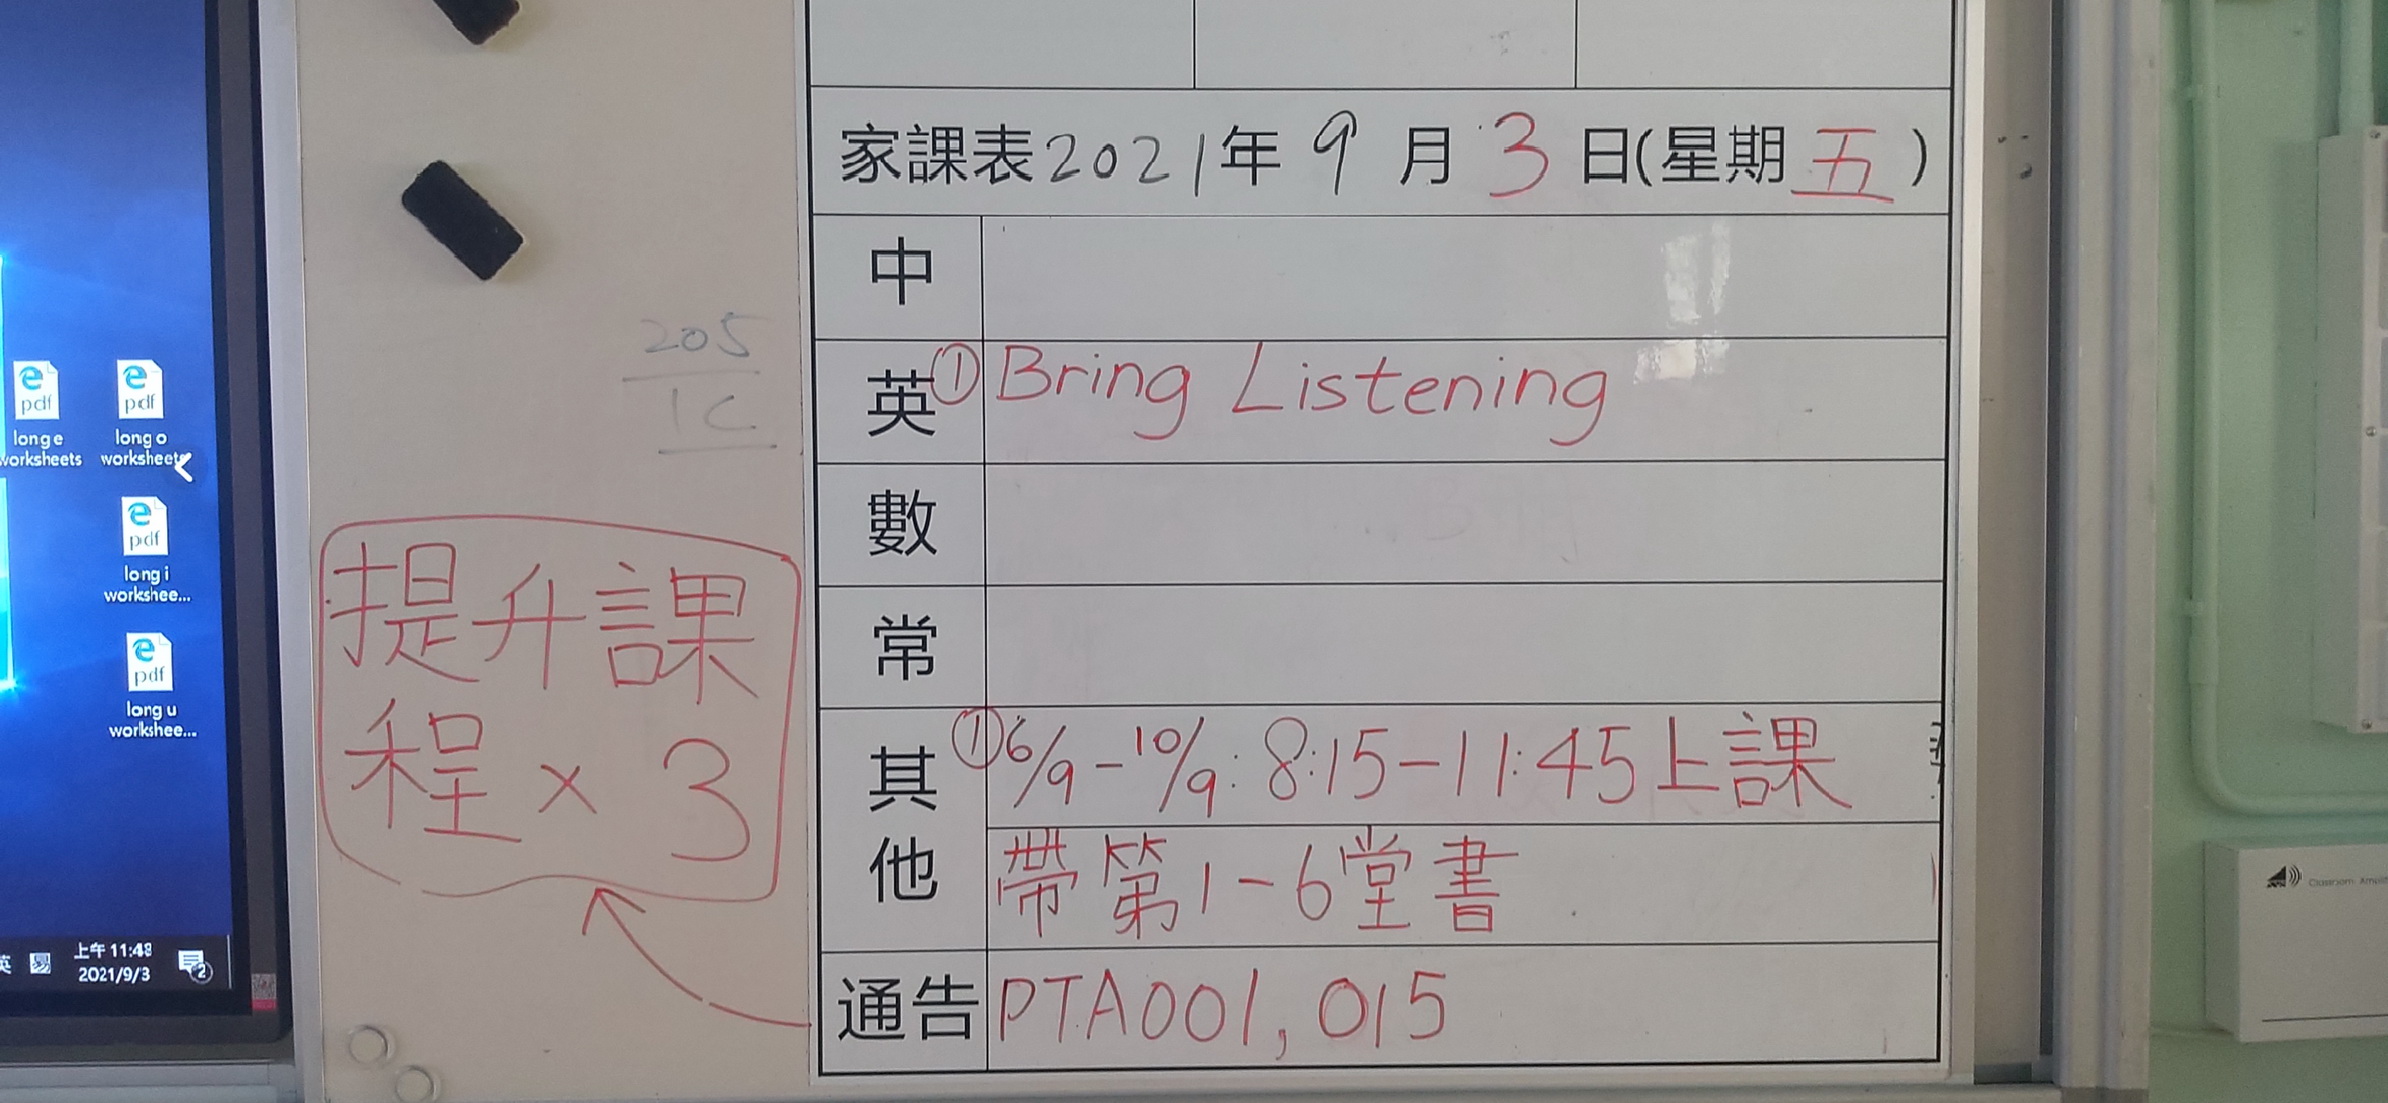 家課表2021年9月3日(星期五)
中
英 ①Bring Listening
數
常
其他 ①6/9-10/9: 8:15-11:45上課
帶第1-6堂書
通告 PTA001, 015
提升課
程×3
205
1C
long e
worksheets
long o
worksheets
long i
workshee...
long u
workshee...
英 易 上午 11:48
2021/9/3
2